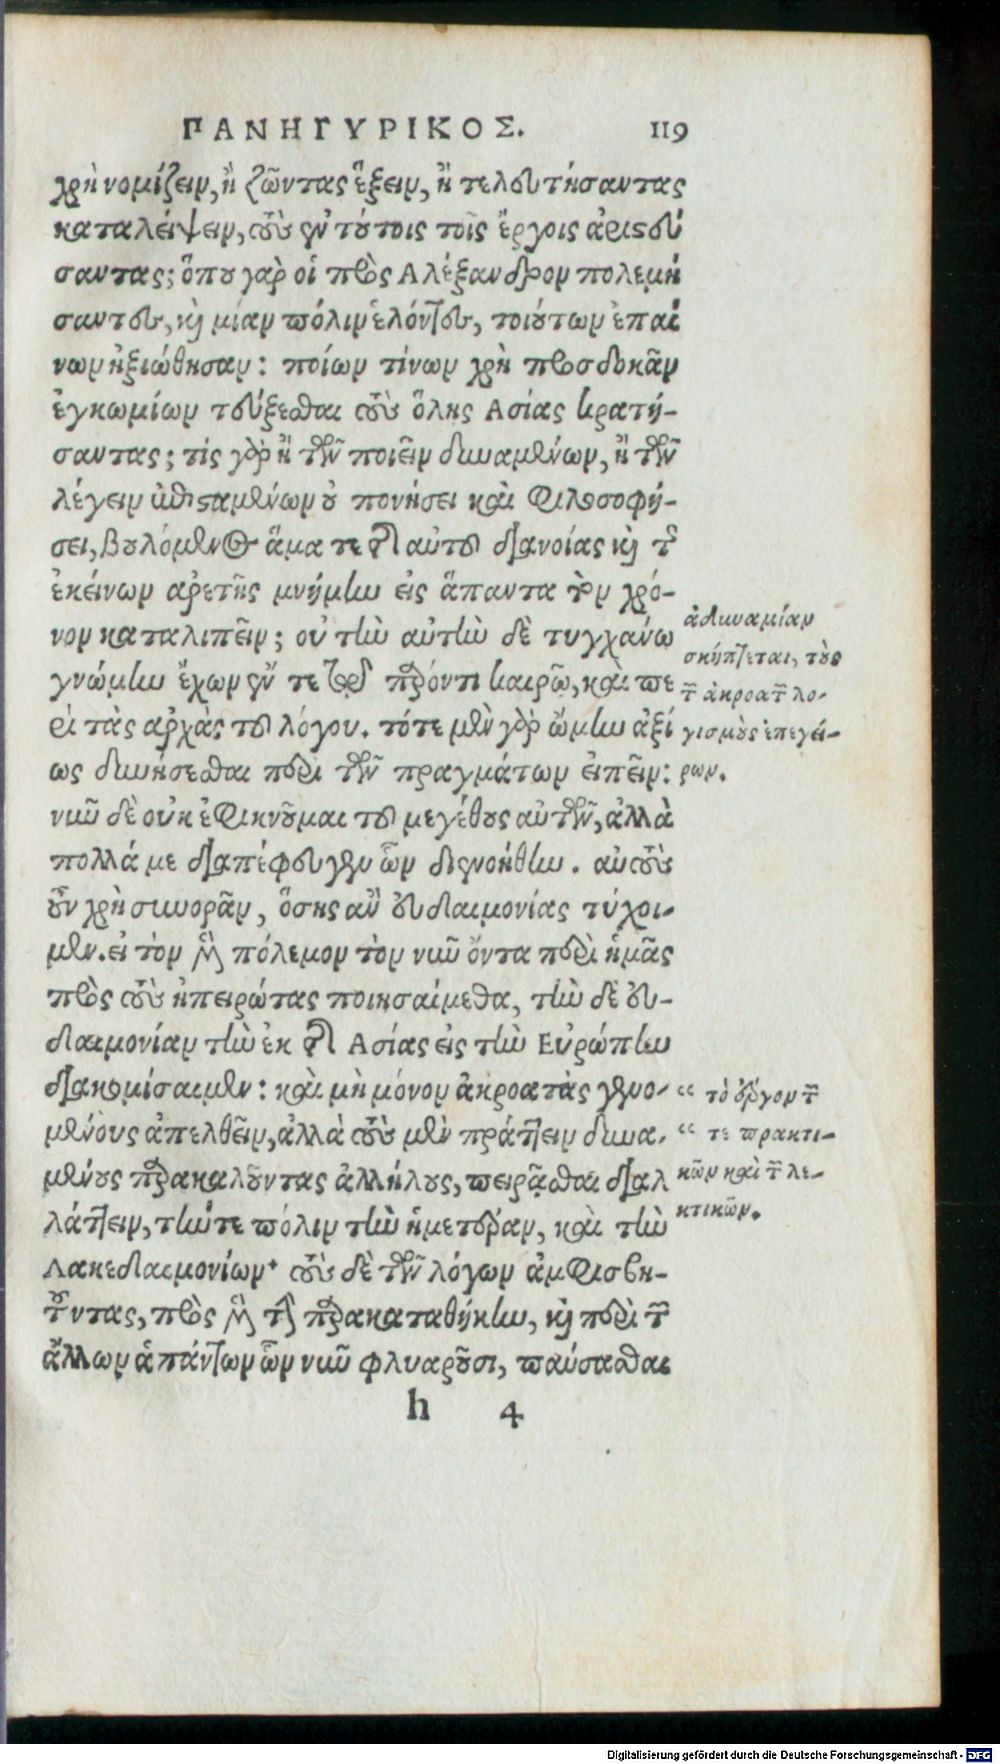 ΠΑΝΗΓΥΡΙΚΟΣ. 119
χρὴ νομίζειν, ἢ ζῶντας ἕξειν, ἢ τελευτήσαντας
καταλείψειν, τοὺς ἐν τούτοις τοῖς ἔργοις ἀριστεύ
σαντας; ὅπου γὰρ οἱ πρὸς Αλέξανδρον πολεμή
σαντες, καὶ μίαν πόλιν ἑλόντες, τοιούτων ἐπαί
νων ἠξιώθησαν: ποίων τίνων χρὴ προσδοκᾶν
ἐγκωμίων τεύξεσθαι τοὺς ὅλης Ασίας κρατή-
σαντας; τίς γὰρ ἢ τῶν ποιεῖν δυναμένων, ἢ τῶν
λέγειν ἐπισταμένων οὐ πονήσει καὶ φιλοσοφή-
σει, βουλόμενος ἅμα τε τῆς αὑτοῦ διανοίας καὶ τῆς
ἐκείνων ἀρετῆς μνήμην εἰς ἅπαντα τὸν χρό-
νον καταλιπεῖν; οὐ τὴν αὐτὴν δὲ τυγχάνω
γνώμην ἔχων ἔν τε τῷ παρόντι καιρῷ, καὶ πε
ρὶ τὰς ἀρχὰς τοῦ λόγου. τότε μὲν γὰρ ᾤμην ἀξί
ως δυνήσεσθαι περὶ τῶν πραγμάτων εἰπεῖν:
νῦν δὲ οὐκ ἐφικνοῦμαι τοῦ μεγέθους αὐτῶν, ἀλλὰ
πολλά με διαπέφευγεν ὧν διενοήθην. αὐτοὺς
οὖν χρὴ συνορᾶν, ὅσης ἂν εὐδαιμονίας τύχοι-
μεν. εἰ τὸν μὲν πόλεμον τὸν νῦν ὄντα περὶ ἡμᾶς
πρὸς τοὺς ἠπειρώτας ποιησαίμεθα, τὴν δὲ εὐ-
δαιμονίαν τὴν ἐκ τῆς Ασίας εἰς τὴν Εὐρώπην
διακομίσαιμεν: καὶ μὴ μόνον ἀκροατὰς γενο-
μένους ἀπελθεῖν, ἀλλὰ τοὺς μὲν πράττειν δυνα-
μένους παρακαλοῦντας ἀλλήλους, πειρᾶσθαι διαλ
λάττειν, τήν τε πόλιν τὴν ἡμετέραν, καὶ τὴν
Λακεδαιμονίων· τοὺς δὲ τῶν λόγων ἀμφισβη-
τοῦντας, πρὸς μὲν τὴν παρακαταθήκην, καὶ περὶ τῶν
ἄλλων ἁπάντων ὧν νῦν φλυαροῦσι, παύσασθαι
h 4
ἀδυναμίαν
σκήπτεται, τοὺς
τῶν ἀκροατῶν λο-
γισμοὺς ἐπεγεί-
ρων.
“ τὸ ἔργον τῶν
“ τε πρακτι-
κῶν καὶ τῶν λε-
κτικῶν.
Digitalisierung gefördert durch die Deutsche Forschungsgemeinschaft - DFG